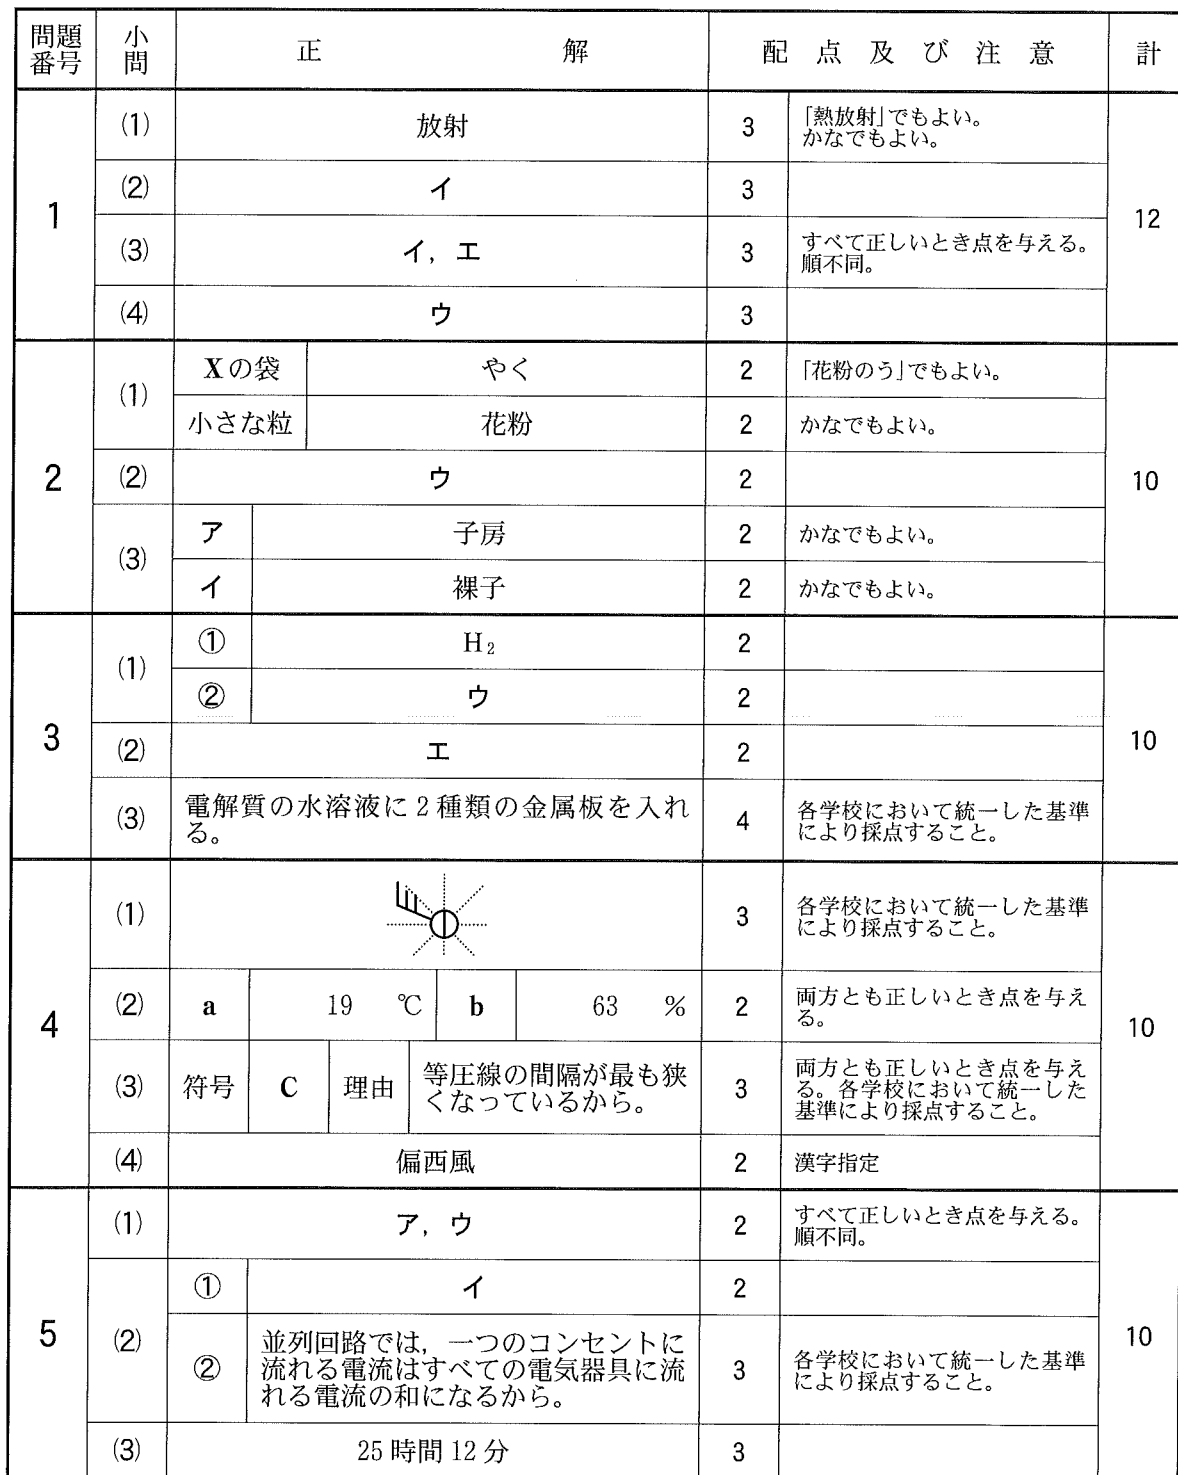 問題番号 小問 正解 配点及び注意 計
1 (1) 放射 3 「熱放射」でもよい。
かなでもよい。
12
(2) イ 3
(3) イ，エ 3 すべて正しいとき点を与える。
順不同。
(4) ウ 3
2 (1) Xの袋 やく 2 「花粉のう」でもよい。
小さな粒 花粉 2 かなでもよい。
(2) ウ 2
10
(3) ア 子房 2 かなでもよい。
イ 裸子 2 かなでもよい。
3 (1) ① H₂ 2
② ウ 2
(2) エ 2
10
(3) 電解質の水溶液に2種類の金属板を入れ
る。
4 各学校において統一した基準
により採点すること。
4 (1) 3 各学校において統一した基準
により採点すること。
(2) a 19 ℃ b 63 % 2 両方とも正しいとき点を与え
る。
10
(3) 符号 C 理由 等圧線の間隔が最も狭
くなっているから。
3 両方とも正しいとき点を与え
る。各学校において統一した
基準により採点すること。
(4) 偏西風 2 漢字指定
5 (1) ア，ウ 2 すべて正しいとき点を与える。
順不同。
(2) ① イ 2
10
② 並列回路では，一つのコンセントに
流れる電流はすべての電気器具に流
れる電流の和になるから。
3 各学校において統一した基準
により採点すること。
(3) 25時間12分 3